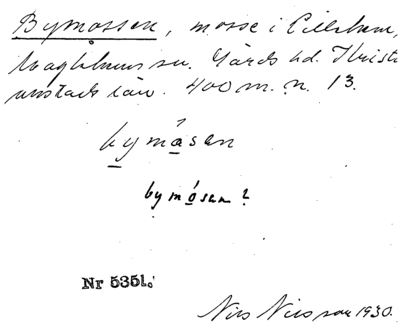 Bymossen, mosse i Lillehem,
Maglehems sn. Gärds hd. Kristi
anstads län. 400 m. n. 13.
bymåsen
bymósen?
Nr 5351.
Nils Nilsson 1930.